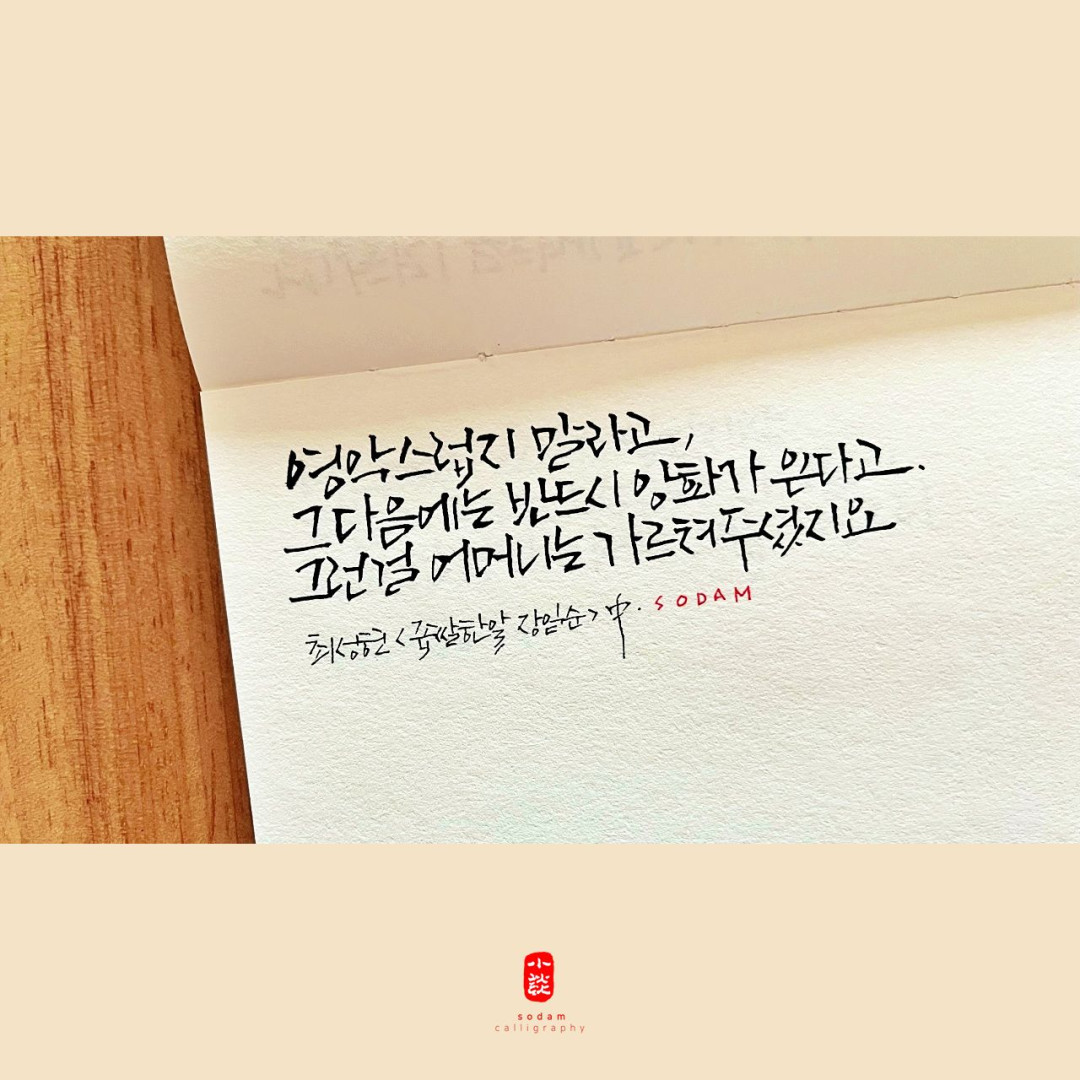 영악스럽지 말라고,
그다음에는 반드시 앙화가 온다고.
그런걸 어머니는 가르쳐주셨지요
최성현 <좁쌀한알 장일순> 中. SODAM
小
談
sodam
calligraphy